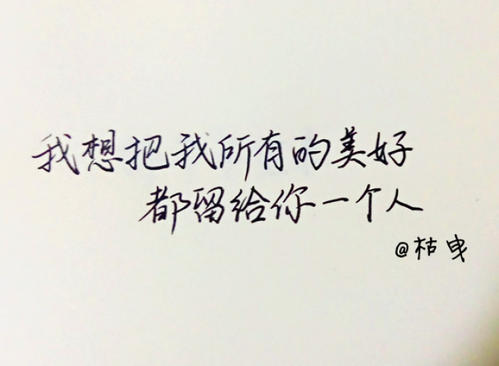 我想把我所有的美好
都留给你一个人
@枯曳